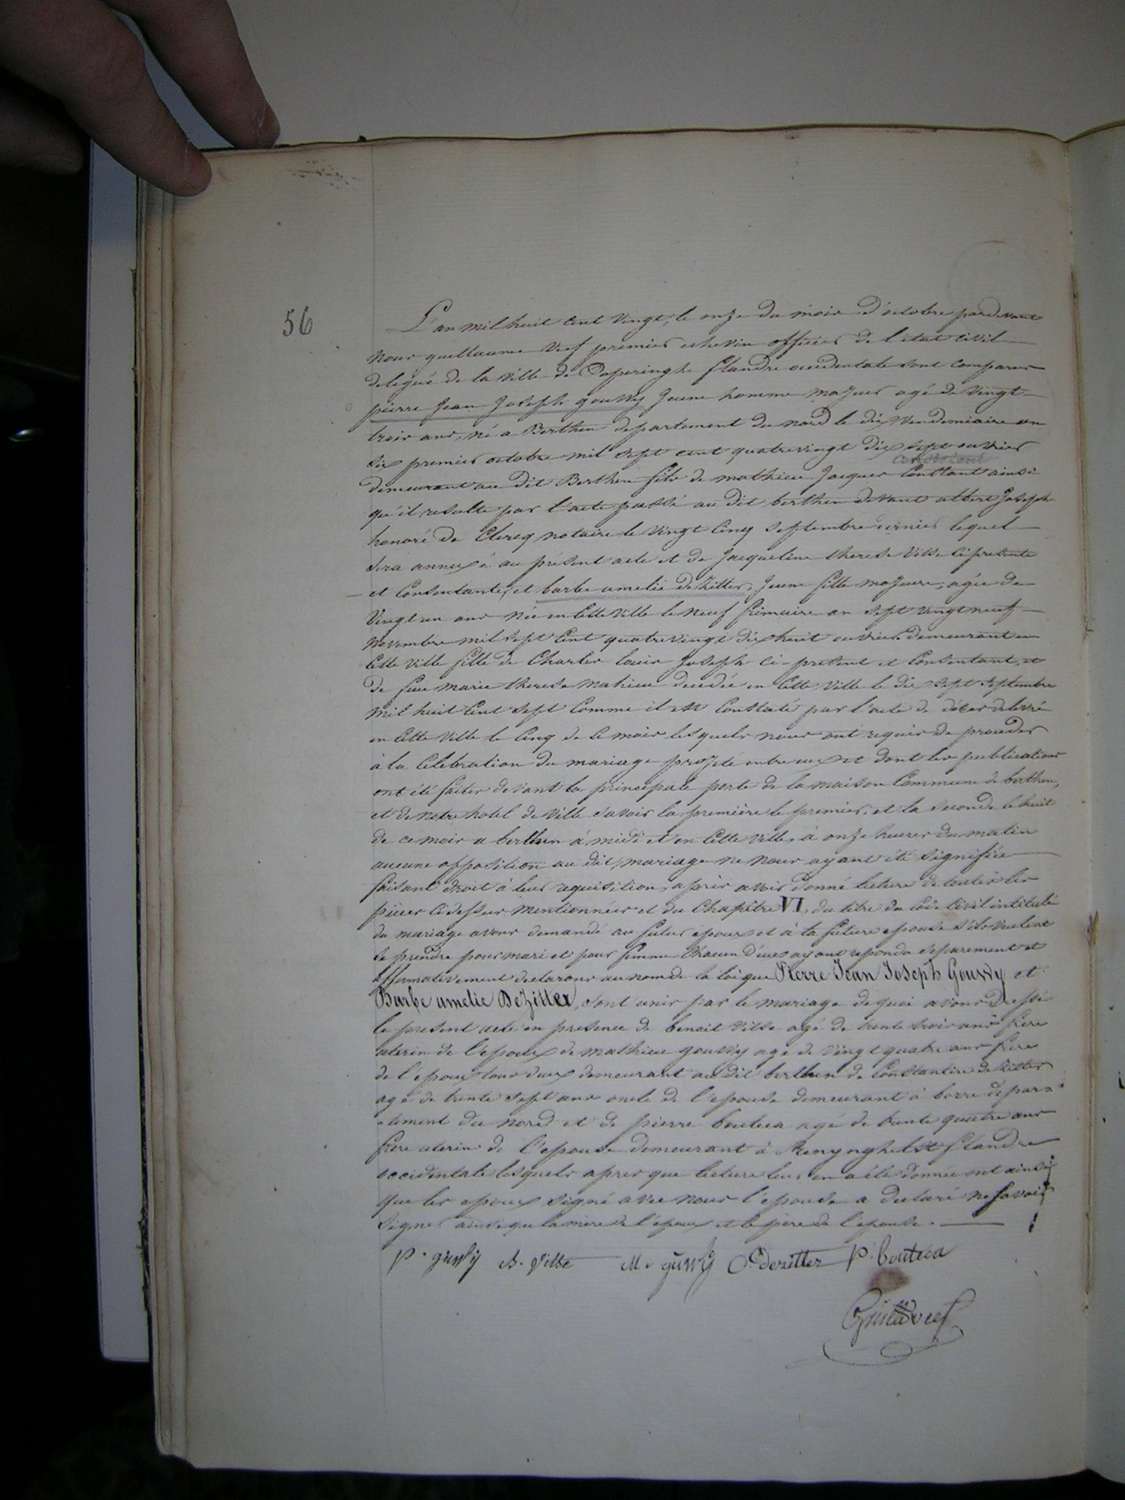 56
L'an mil huit cent vingt, le onze du mois d'octobre pardevant
nous guillaume Veef premier echevin officier de l'etat civil
delegué de la ville de Poperinghe flandre occidentale sont comparus
pierre Jean Joseph goussy Jeune homme majeur agé de Vingt
trois ans, né a Berthen departement du nord le dix Vendemiaire an
six premier octobre mil sept cent quatrevingt dix sept ouvrier
demeurant au dit Berthen fils de mathieu Jacques Constant ainsi
qu'il resulte par l'acte passé au dit berthen devant albert Joseph
honoré de Clercq notaire le Vingt Cinq Septembre dernier lequel
sera annexé au présent acte et de Jacqueline therese Ville ci presente
et Consentante, et barbe amelie deZitter, Jeune fille majeure, agée de
Vingt un ans née en Cette Ville le neuf frimaire an sept vingt neuf
novembre mil sept Cent quatrevingt dix huit ouvriere demeurant en
Cette Ville fille de Charles louis Joseph Ci present et Consentant, et
de feue marie therese mahieu decedée en Cette Ville le dix sept Septembre
mil huit Cent sept Comme il est Constaté par l'acte de décès delivré
en Cette Ville le Cinq de Ce mois lesquels nous ont requis de proceder
à la Celebration du mariage projeté entre eux et dont les publications
ont été faites devant la principale porte de la maison Commune de berthen,
et de notre hotel de Ville savoir la première le premier, et la seconde le huit
de ce mois a berthen à midi et en Cette Ville, à onze heures du matin
aucune opposition au dit mariage ne nous ayant été signifiée
faisant droit à leur requisition, après avoir donné lecture de toutes les
pieces Cidessus mentionnées et du Chapitre VI, du titre du Code Civil intitulé
du mariage avons demandé au futur epoux et à la future epouse s'ils veulent
se prendre pour mari et pour femme Chacun d'eux ayant repondu separement et
affirmativement declarons au nom de la loi que Pierre Jean Joseph Goussy et
Barbe amelie DeZitter, sont unis par le mariage de quoi avons Dressé
le present acte en presence de benoit Ville agé de trente trois ans frere
uterin de l'epoux de mathieu goussy agé de Vingt quatre ans frere
de l'epoux tous deux demeurant au dit berthen de Constantin deZitter
agé de trente sept ans oncle de l'epouse demeurant à borre depar-
-tement du nord et de pierre bouteca agé de trente quatre ans
frere uterin de l'epouse demeurant à Renynghelst flandre
occidentale lesquels apres que lecture leur en a été donnée ont ainsi
que les epoux signé avec nous l'epouse a declaré ne savoir
signer ainsi que la mere de l'epoux et le pere de l'epouse.
P. gussy B. Ville M. gussy C deZitter P. bouteca